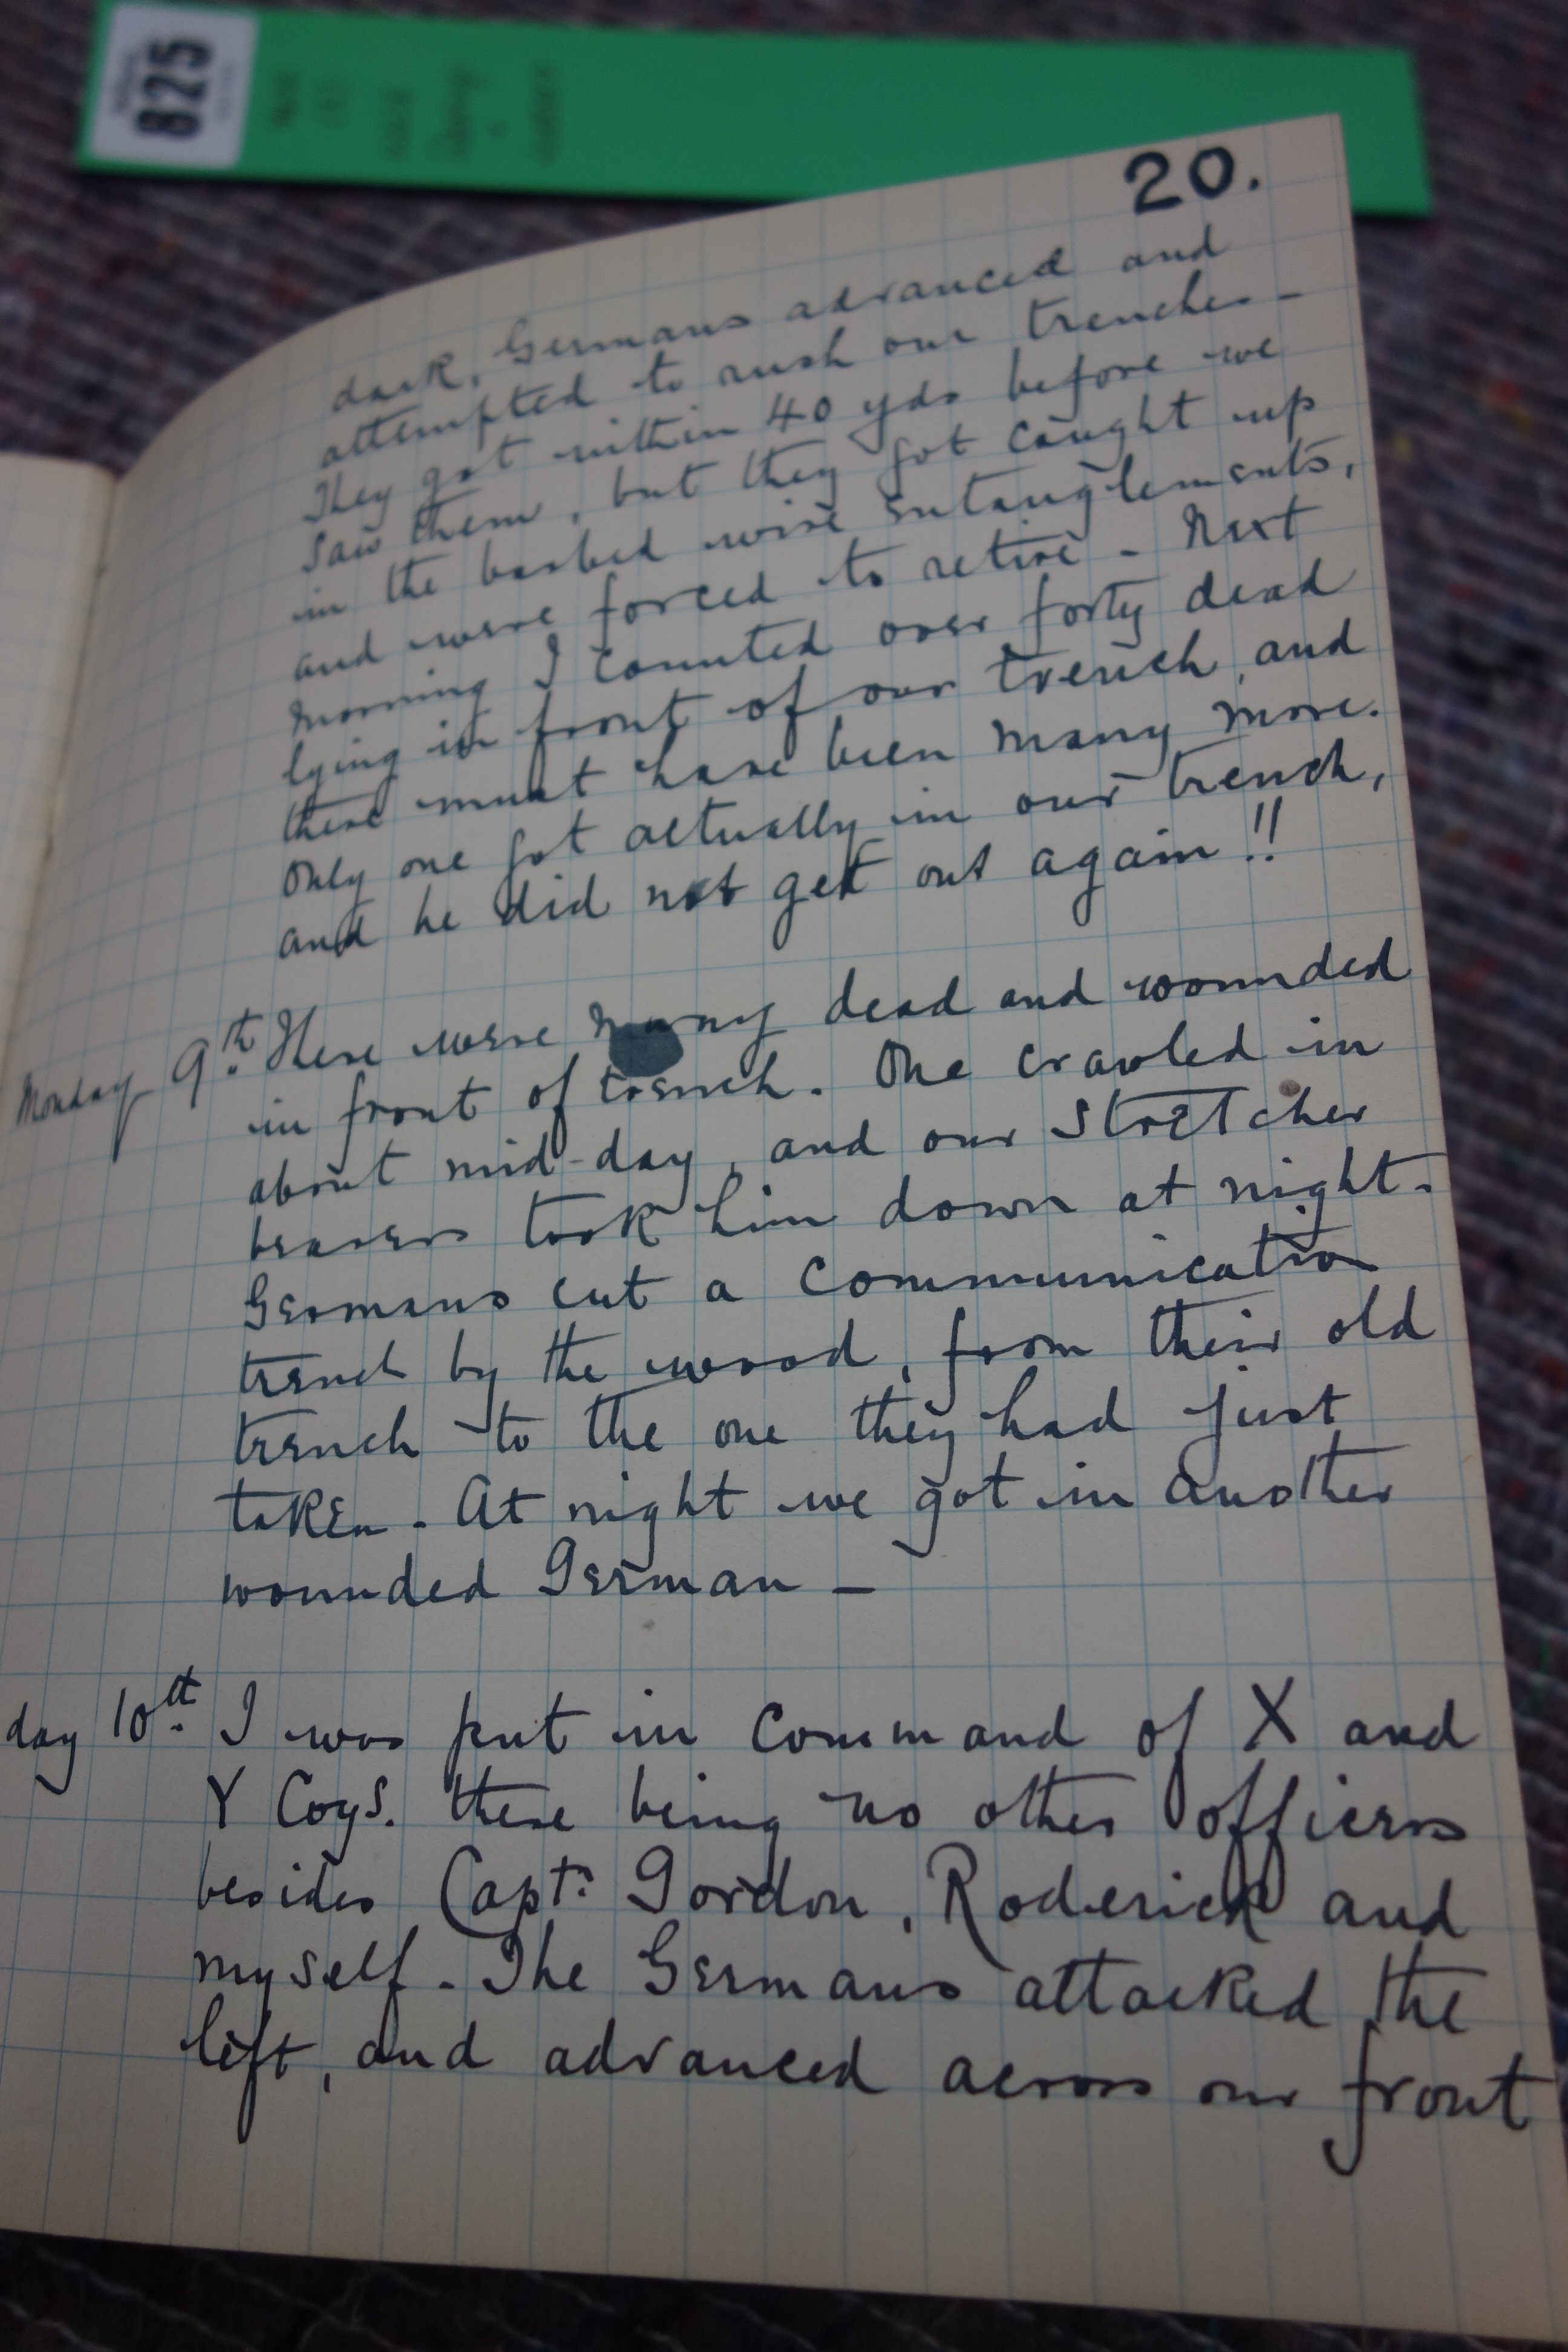 825
20.
dark, Germans advanced and
attempted to rush our trenches –
They got within 40 yds before we
saw them, but they got caught up
in the barbed wire entanglements,
and were forced to retire – Next
morning I counted over forty dead
lying in front of our trench, and
there must have been many more.
Only one got actually in our trench,
and he did not get out again !!
Monday 9th. There were many dead and wounded
in front of trench. One crawled in
about mid-day, and our stretcher
bearers took him down at night.
Germans cut a communication
trench by the wood, from their old
trench to the one they had just
taken – At night we got in another
wounded German –
day 10th. I was put in command of X and
Y Coys. there being no other officers
besides Capt. Gordon, Roderick and
myself – The Germans attacked the
left, and advanced across our front